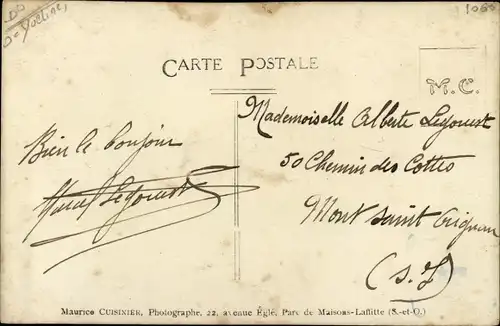 1060
CARTE POSTALE
M.C.
Mademoiselle Alberte Legouest
50 Chemin des Cottes
Mont Saint Aignan
(S. I)
Bien le bonjour
Marcel Legouest
Maurice CUISINIER, Photographe, 22, avenue Églé, Parc de Maisons-Laffitte (S.-et-O.)